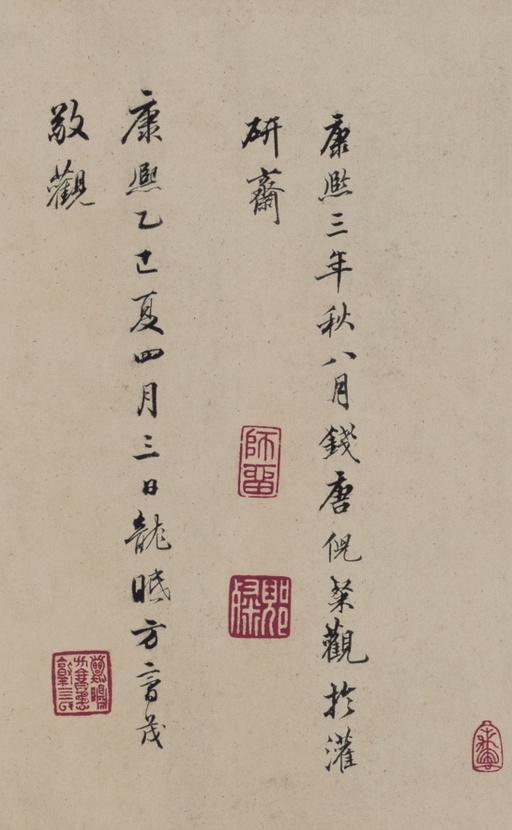 康熙三年秋八月錢唐倪粲觀於灌
研齋
康熙乙巳夏四月三日龍眠方亨咸
敬觀
師留